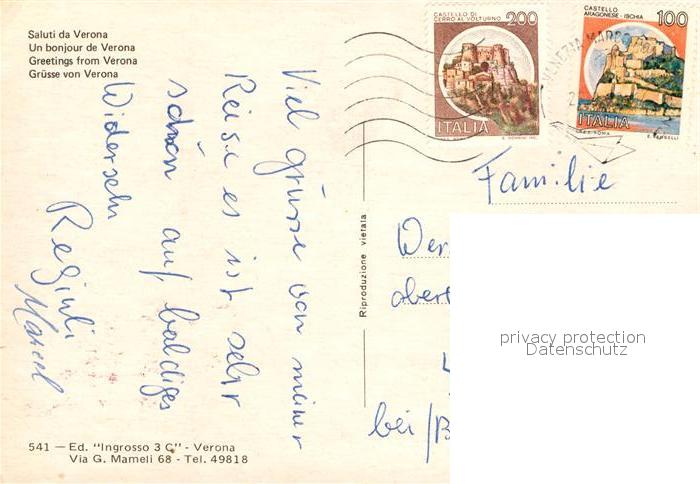 Saluti da Verona
Un bonjour de Verona
Greetings from Verona
Grüsse von Verona
CASTELLO DI
CERRO AL VOLTURNO 200
ITALIA
CASTELLO
ARAGONESE - ISCHIA 100
ITALIA
VENEZIA MARCO
Viel grüsse von meiner
Reise es ist sehr
schön auf baldiges
Widersehn
Marcel
Riproduzione vietata
Familie
Wer
obert
bei/B
privacy protection
Datenschutz
541 — Ed. "Ingrosso 3 C" - Verona
Via G. Mameli 68 - Tel. 49818